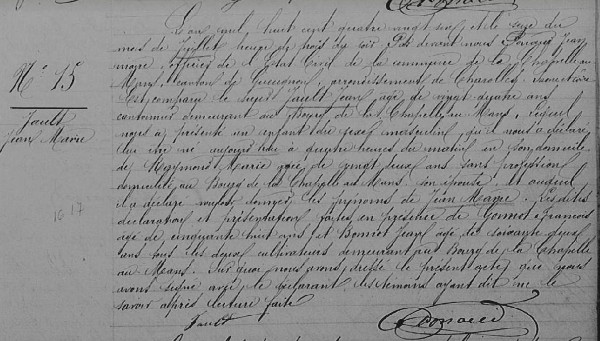 N° 15
Jault
Jean Marie
L'an mil huit cent quatre vingt six et le seize du
mois de Juillet heure de trois du soir Par devant nous Jean
maire, officier de l'Etat Civil de la commune de la Chapelle au
Mans, canton de Gueugnon, arrondissement de Charolles, Saone et Loire
Est comparu le sieur Jault Jean, agé de vingt quatre ans
cantonnier demeurant au Bourg de la Chapelle au Mans, lequel
nous a présenté un enfant du sexe masculin, qu'il nous a déclaré
être né aujourd'hui à quatre heures du matin en son domicile
de Reymond Marie agée de vingt deux ans sans profession
domiciliée au Bourg de la Chapelle au Mans, son épouse, et auquel
il a déclaré vouloir donner les prénoms de Jean Marie. Les dites
déclaration et présentation faites en présence de Gonnot François
agé de cinquante huit ans et Bonnot Jean agé de soixante
ans tous les deux cultivateurs demeurant au Bourg de la Chapelle
au Mans. Sur quoi nous avons dressé le présent acte que nous
avons signé avec le déclarant les témoins ayant dit ne le
savoir après lecture faite
Jault
16 17